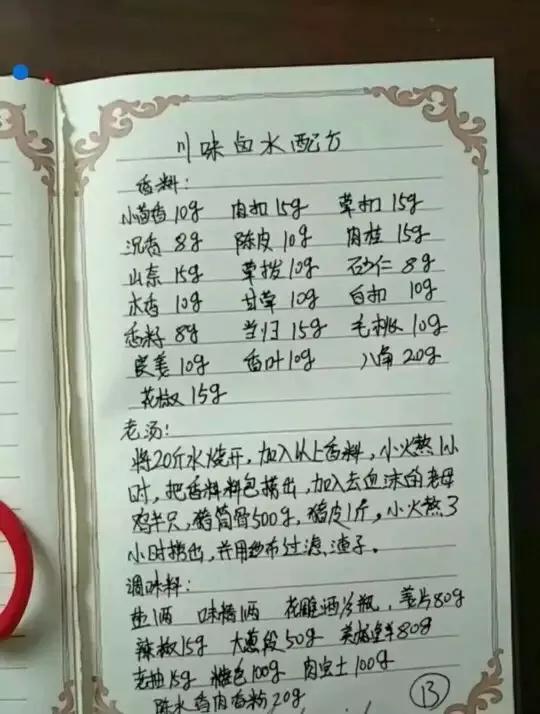 川味卤水配方
香料:
小茴香10g 肉扣15g 草扣15g
沉香8g 陈皮10g 肉桂15g
山奈15g 草拨10g 石仁8g
木香10g 甘草10g 白扣10g
香籽8g 当归15g 毛桃10g
良姜10g 香叶10g 八角20g
花椒15g
老汤:
将20斤水烧开,加入以上香料,小火熬1小
时,把香料料包捞出,加入去血沫的老母
鸡半只,猪筒骨500g,猪皮1斤,小火熬3
小时捞出,并用纱布过滤渣子。
调味料:
盐1两 味精1两 花雕酒 瓶,姜片80g
辣椒15g 大葱段50g 80g
老抽15g 糖色100g 肉 100g
陈水 肉香粉20g
13